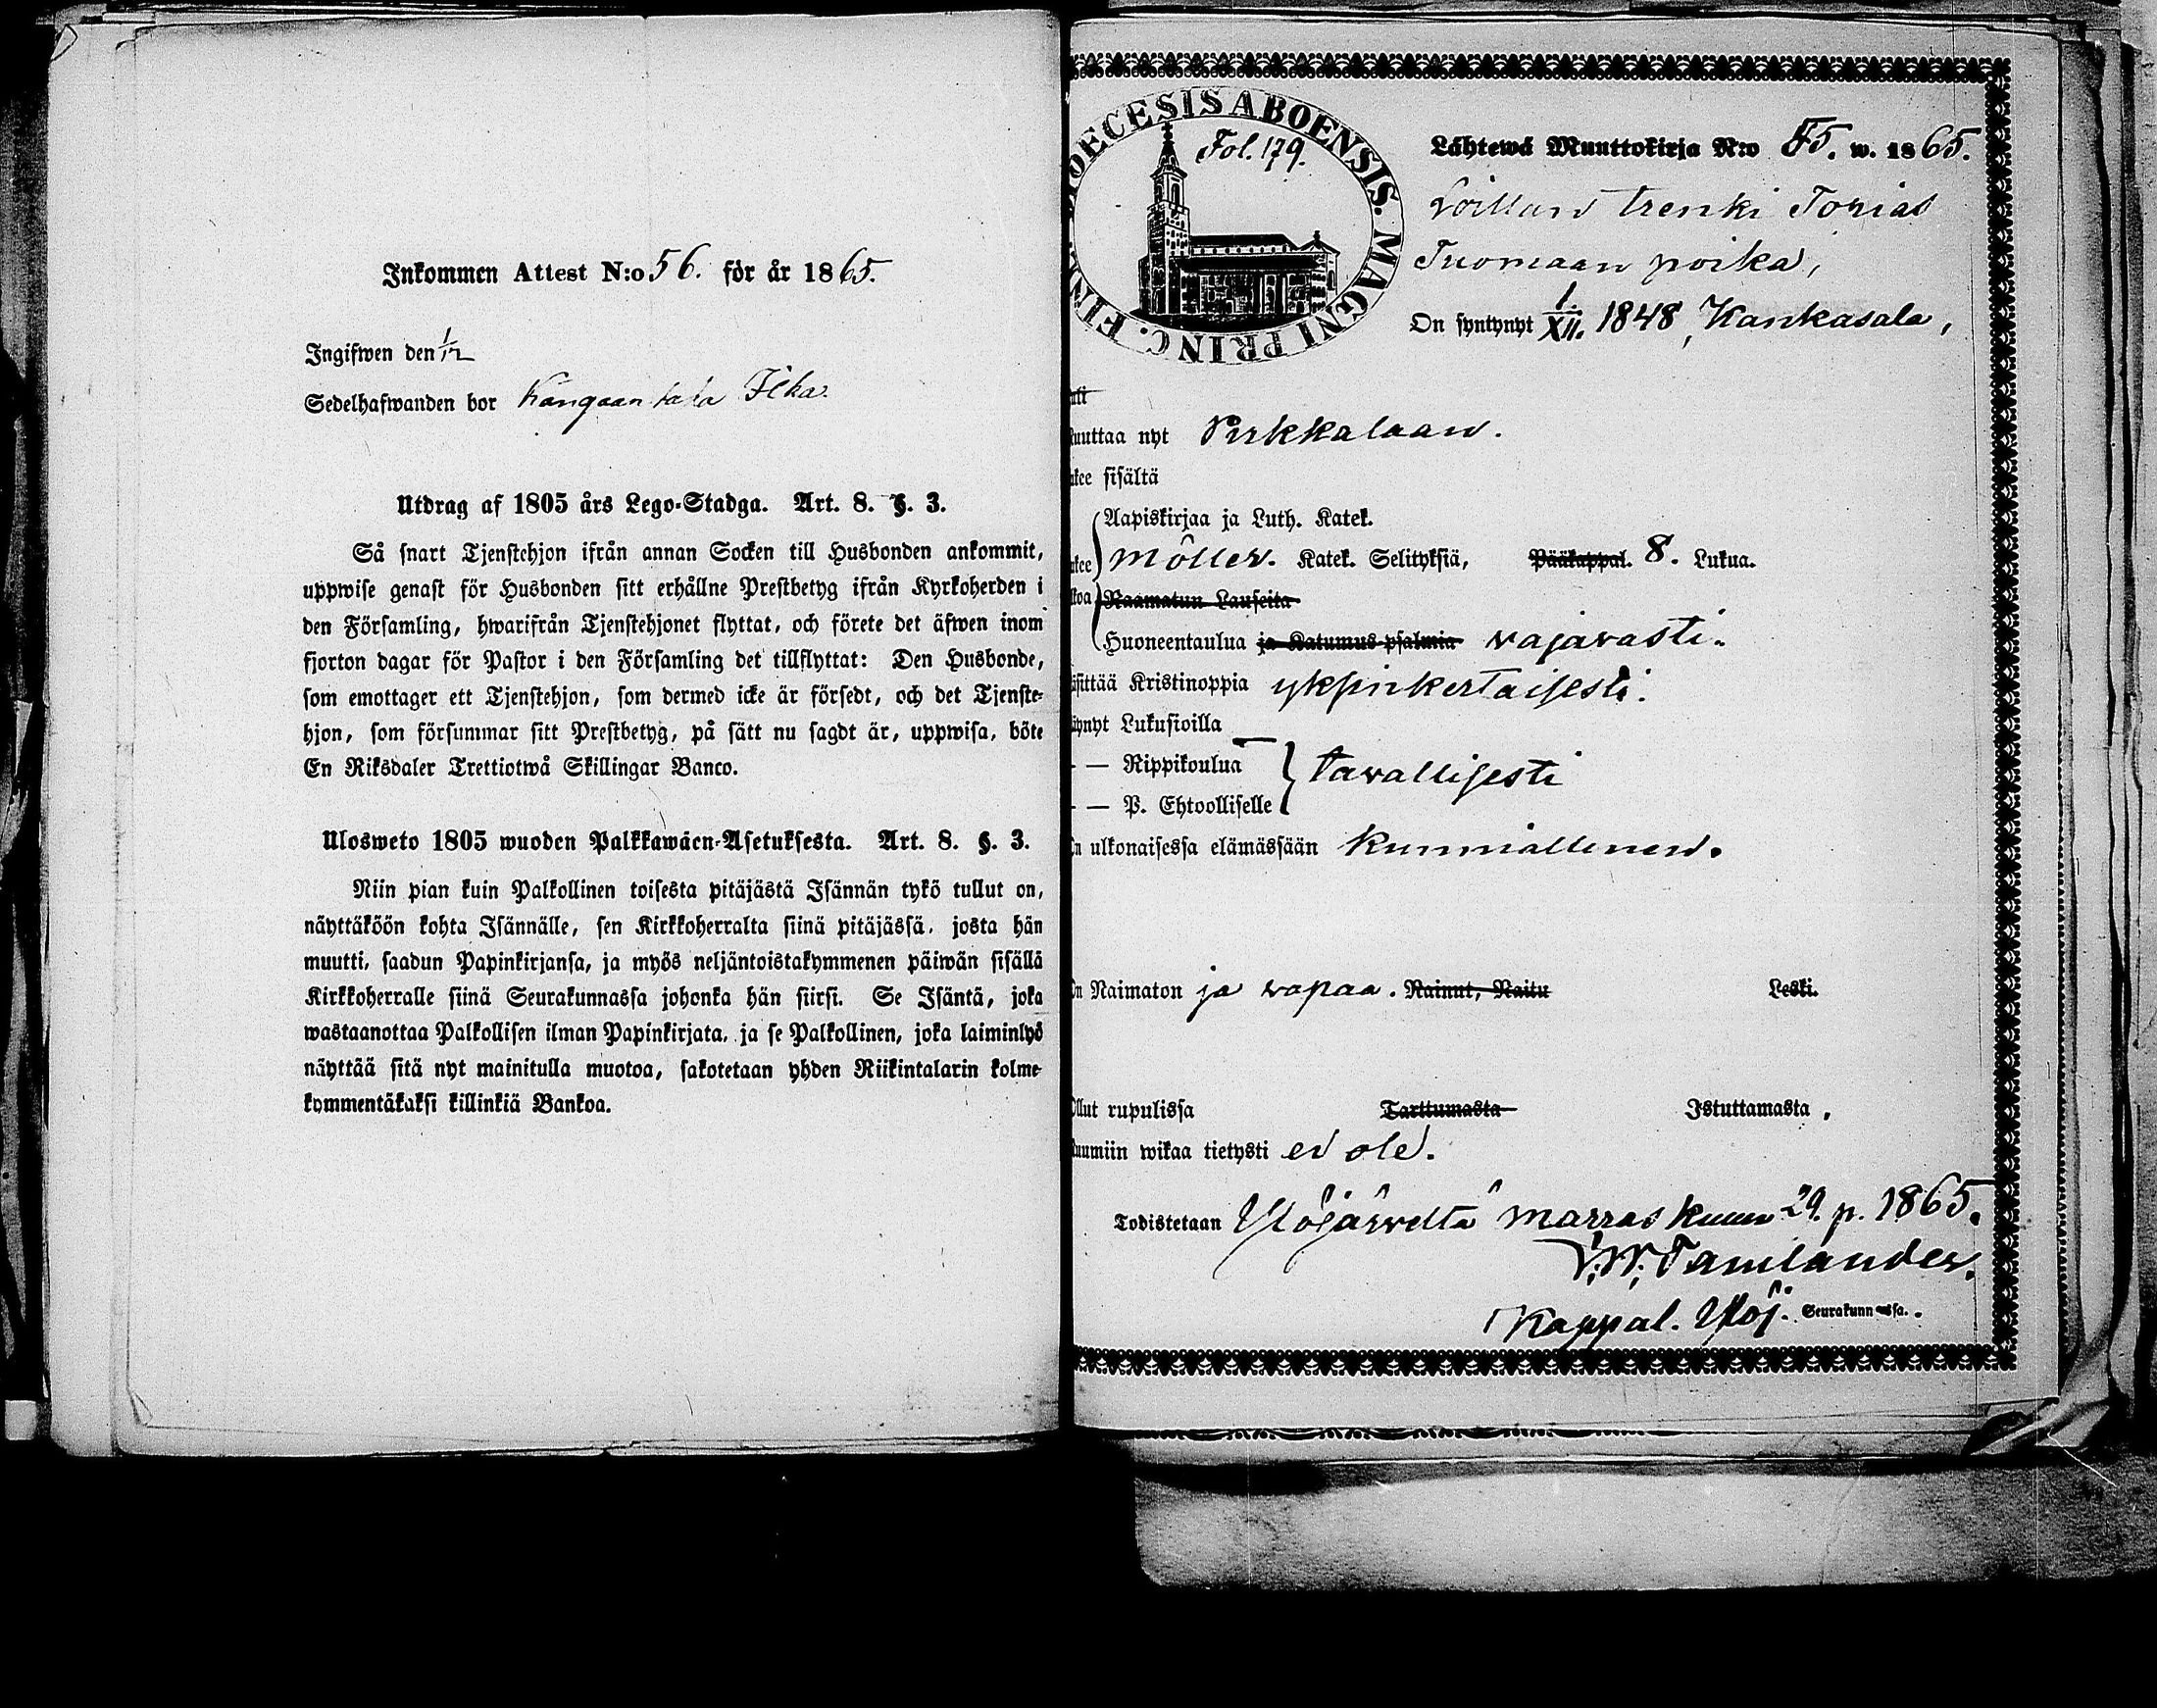 Inkommen Attest N:o 56. för år 1865.
Ingifwen den 1/12
Sedelhafwanden bor Kangaantaka Ilka.
Utdrag af 1805 års Lego-Stadga. Art. 8. §. 3.
Så snart Tjenstehjon ifrån annan Socken till Husbonden ankommit,
uppwise genast för Husbonden sitt erhållne Prestbetyg ifrån Kyrkoherden i
den Församling, hwarifrån Tjenstehjonet flyttat, och förete det äfwen inom
fjorton dagar för Pastor i den Församling det tillflyttat: Den Husbonde,
som emottager ett Tjenstehjon, som dermed icke är försedt, och det Tjenste-
hjon, som försummar sitt Prestbetyg, på sätt nu sagdt är, uppwisa, böte
En Riksdaler Trettiotwå Skillingar Banco.
Ulosweto 1805 wuoden Palkkawäen-Asetuksesta. Art. 8. §. 3.
Niin pian kuin Palkollinen toisesta pitäjästä Isännän tykö tullut on,
näyttäköön kohta Isännälle, sen Kirkkoherralta siinä pitäjässä, josta hän
muutti, saadun Papinkirjansa, ja myös neljäntoistakymmenen päiwän sisällä
Kirkkoherralle siinä Seurakunnassa johonka hän siirsi. Se Isäntä, joka
wastaanottaa Palkollisen ilman Papinkirjata, ja se Palkollinen, joka laiminlyö
näyttää sitä nyt mainitulla muotoa, sakotetaan yhden Riikintalarin kolme-
kymmentäkaksi killinkiä Bankoa.
DIOECESIS ABOENSIS. MAGNI PRINC. FINL.
Fol. 179.
Lähtewä Muuttokirja N:o 55. w. 1865.
trenki Tobias
Tuomaan poika,
On syntynyt 1./XII. 1848, Kankasala,
uttaa nyt Pirkkalaan.
kee sisältä
Aapiskirjaa ja Luth. Katek.
kee Möller. Katek. Selityksiä, Pääkappal. 8. Lukua.
koa Raamatun Lauseita
Huoneentaulua ja Katumus-psalmia vajavasti.
äsittää Kristinoppia ykfinkertaisesti.
äynyt Lukusioilla
— — Rippikoulua } tavallisesti
— — P. Ehtoolliselle
n ulkonaisessa elämässään kunniallinen.
n Naimaton ja vapaa. Nainut, Naitu Leski.
llut rupulissa Tarttumasta Istuttamasta.
uumiin wikaa tietysti ei ole.
Todistetaan Ylöjärveltä marraskuun 29. p. 1865.
Tamlander.
Kappal. Ylöj. Seurakunnassa.